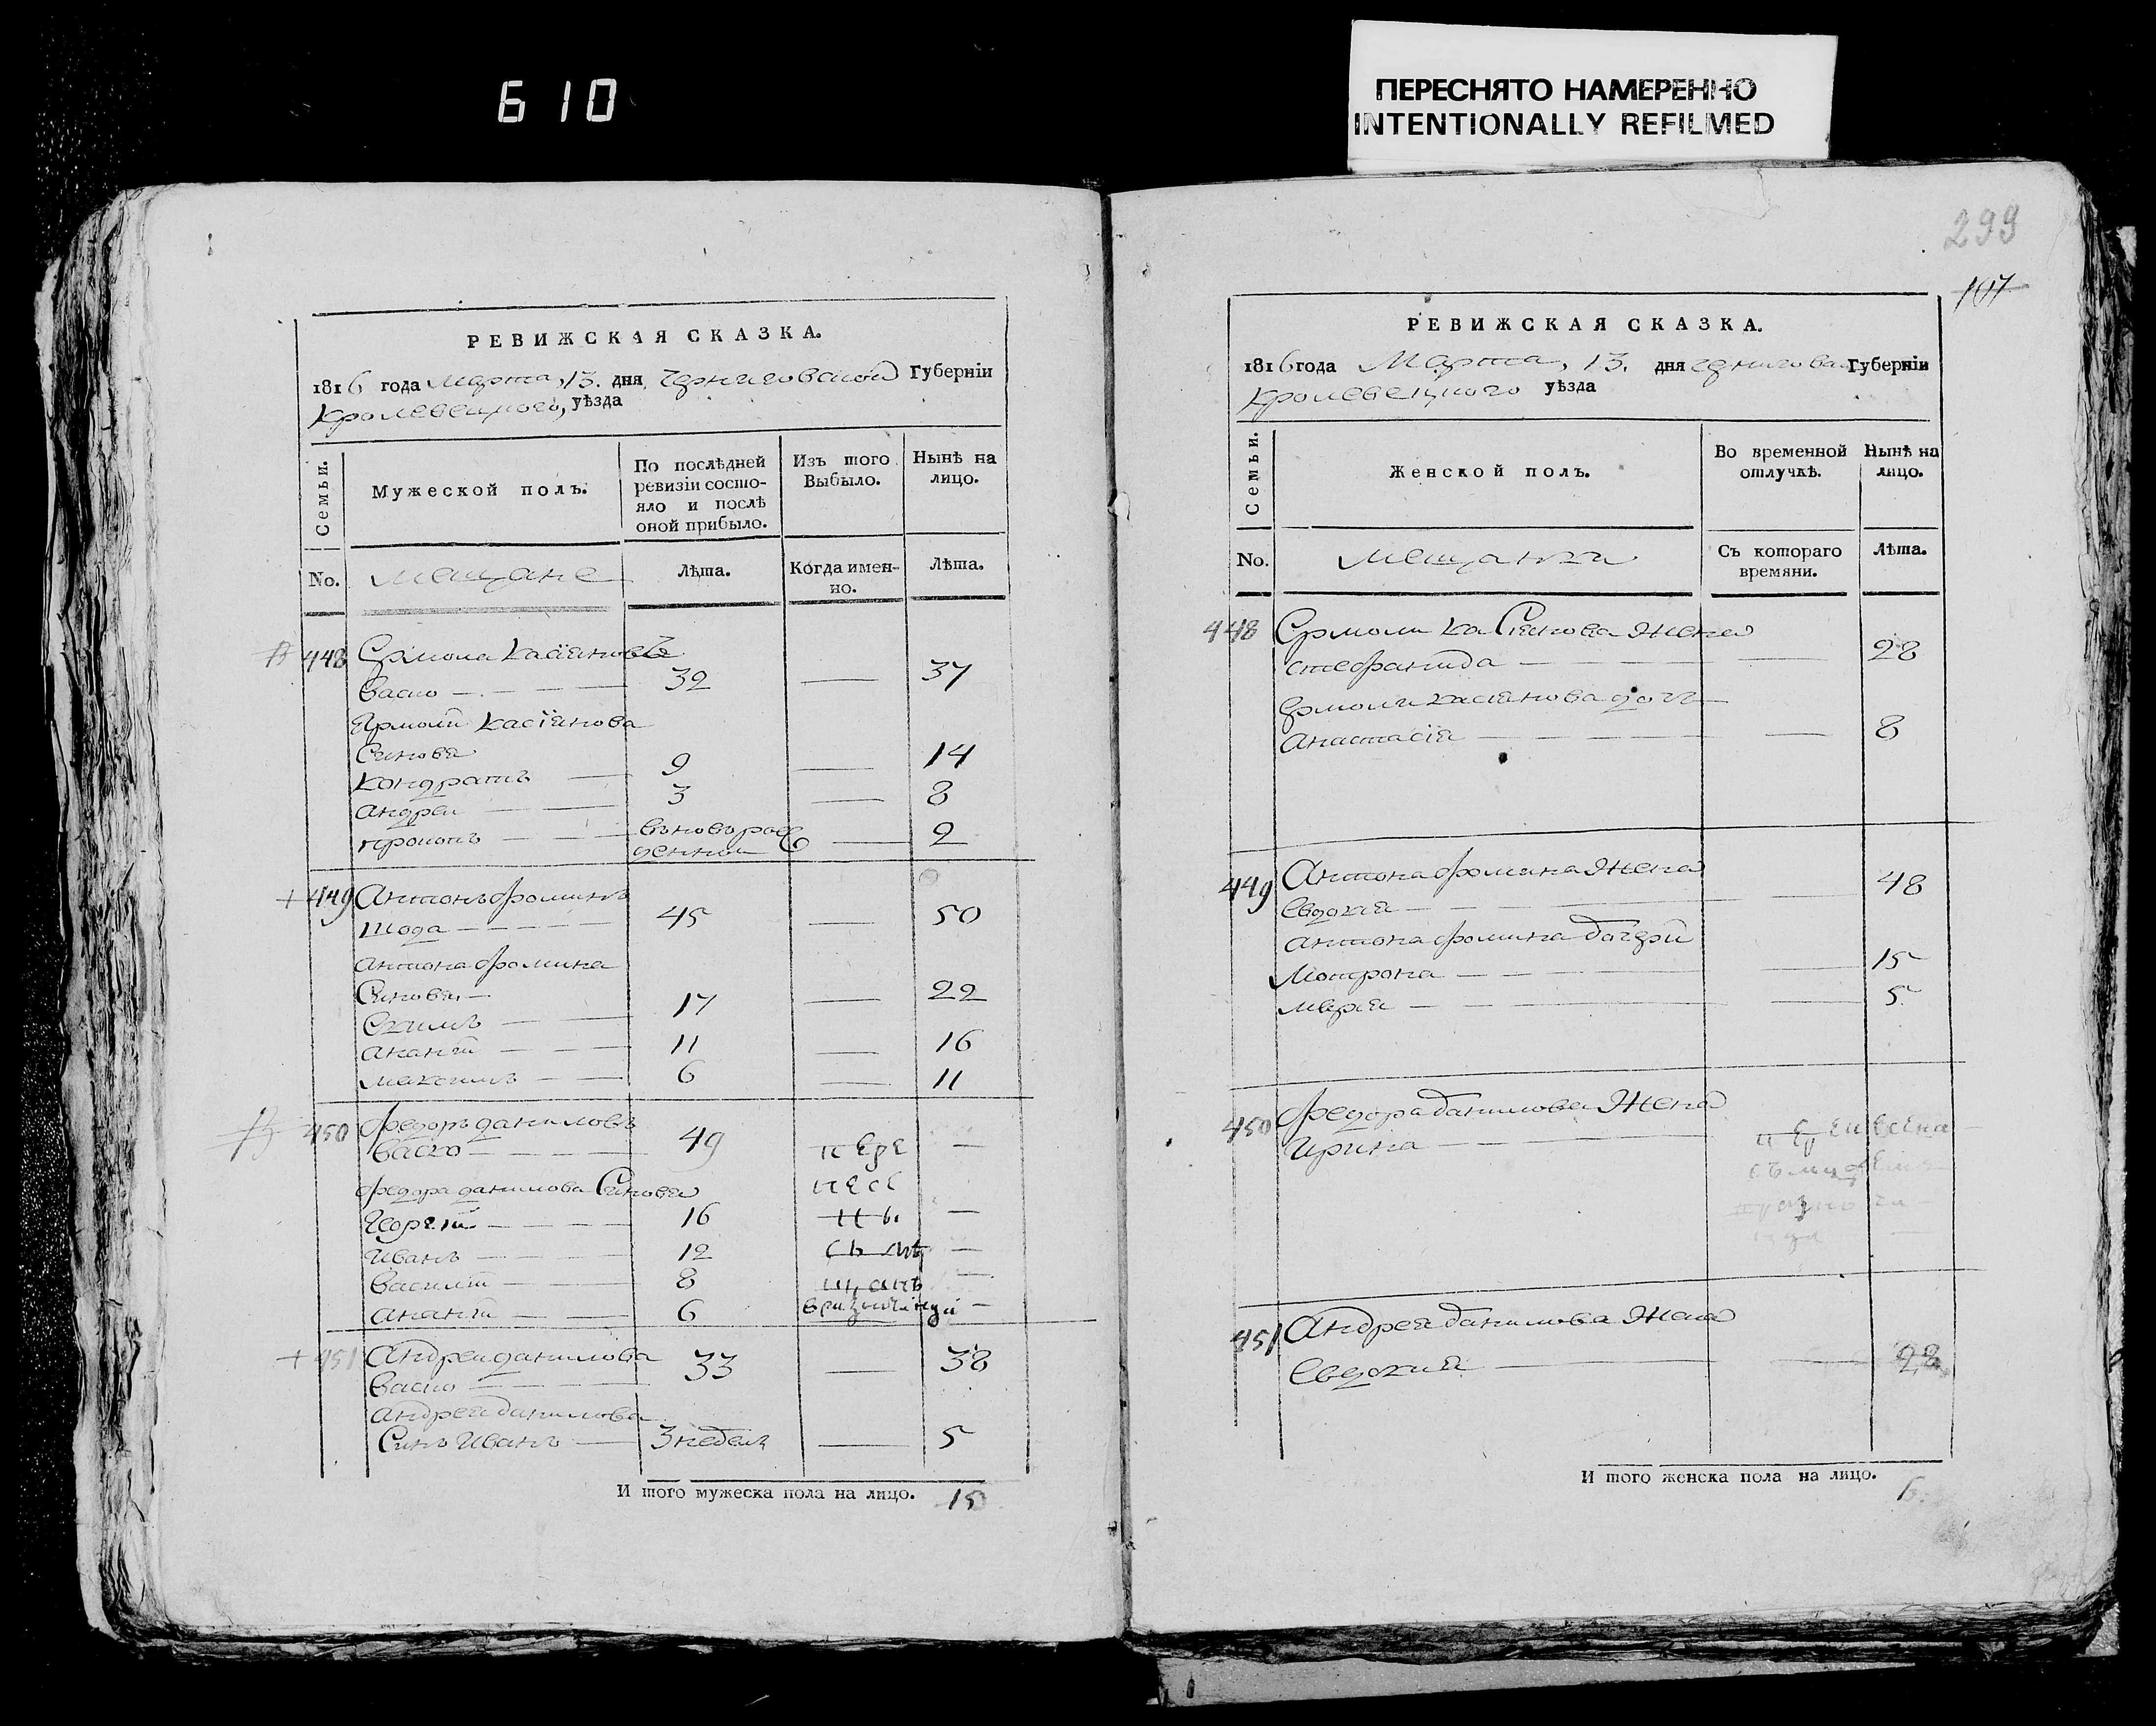 610
ПЕРЕСНЯТО НАМЕРЕННО
INTENTIONALLY REFILMED
РЕВИЖСКАЯ СКАЗКА.
1816 года Марта, 13. дня, Черниговской Губерніи
Кролевецкого, уѣзда
Семьи.
Мужеской полъ.
По послѣдней ревизіи состояло и послѣ оной прибыло.
Изъ того Выбыло.
Нынѣ на лицо.
No.
мещане
Лѣта.
Когда именно.
Лѣта.
448 Ермола Касіяновъ
Васко 32 — 37
Ярмоли Касіянова
Синовя
Кондратъ 9 — 14
андрей 3 — 8
прокопъ вьновь рожденной — 2
+ 449 Антонъ фоминъ
Шода 45 — 50
антона фомина
Синовя
Екимъ 17 — 22
ананій 11 — 16
максимъ 6 — 11
450 федоръ даниловъ
Васко 49 —
федора данилова Синовя
Георгій 16 —
иванъ 12 —
Василій 8 —
ананій 6 —
+ 451 Андрей данилова
Васко 33 — 38
андрея данилова
Синъ Иванъ 3 недель — 5
И того мужеска пола на лицо. 10
299
107
РЕВИЖСКАЯ СКАЗКА.
1816 года Марта, 13. дня Губерніи
Кролевецкого уѣзда
Семьи.
Женской полъ.
Во временной отлучкѣ.
Нынѣ на лицо.
No.
мещанки
Съ котораго времяни.
Лѣта.
448 Ермоли Касіянова Жена
стефанида — 28
Ермоли касіянова дочъ
анастасія — 8
449 Антона фомина Жена
Евдокія — 48
антона фомина дочери
Мотрона — 15
марія — 5
450 федора данилова Жена
Ирина
451 Андрея данилова Жена
Евдокия — 28
И того женска пола на лицо. 6.